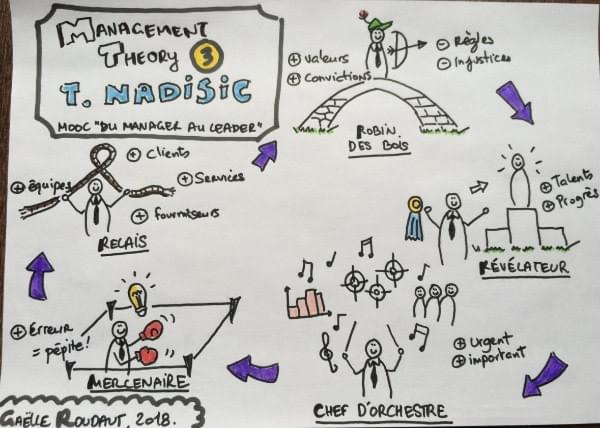 MANAGEMENT
THEORY 3
T. NADISIC
MOOC "DU MANAGER AU LEADER"
+ Valeurs
+ Convictions
- Règles
- Injustices
ROBIN
DES BOIS
+ Talents
+ Progrès
RÉVÉLATEUR
+ Urgent
+ important
CHEF D'ORCHESTRE
+ Erreur
= pépite!
MERCENAIRE
+ équipes
+ Clients
+ Services
+ fournisseurs
RELAIS
GAËLLE ROUDAUT, 2018.